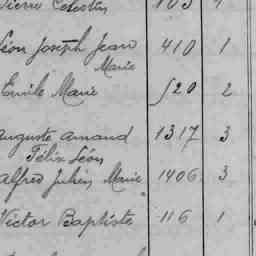 Pierre Célestin 105
Léon Joseph Jean 410 1
Marie
Emile Marie 520 2
Auguste Amand 1317 3
Félix Léon
Alfred Julien Marie 1406 3
Victor Baptiste 116 1